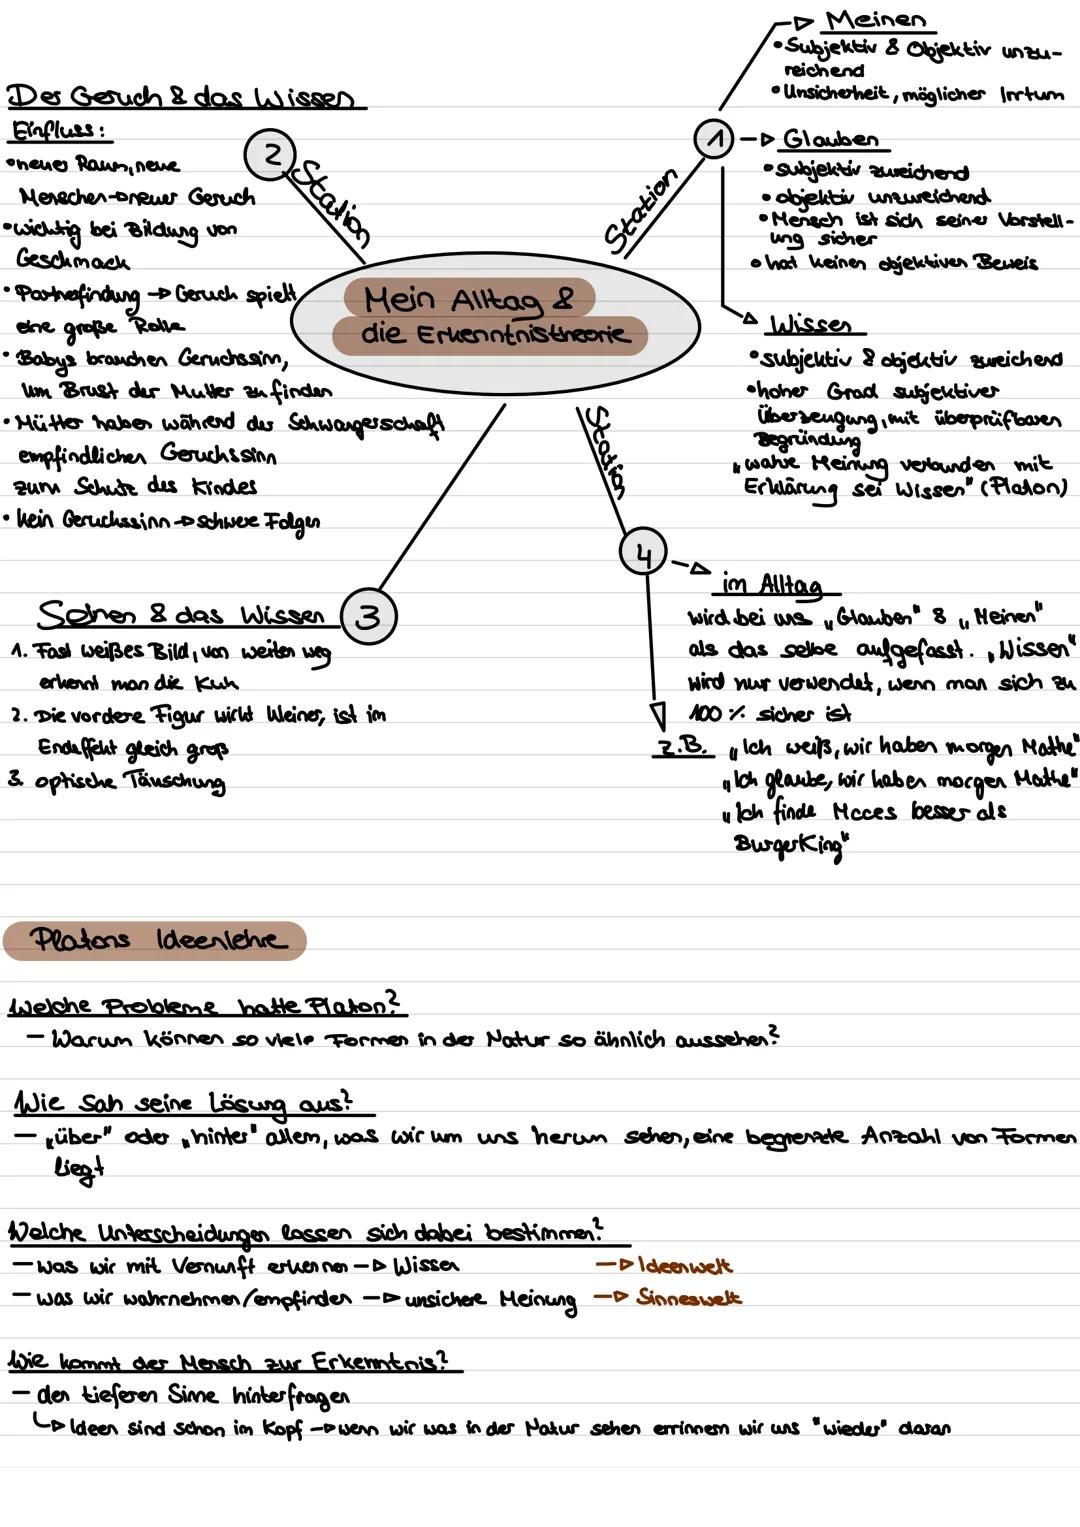 Mein Alltag &
die Erkenntnistheorie
Station
1
Meinen
• Subjektiv & Objektiv unzu-
reichend
• Unsicherheit, möglicher Irrtum
Glauben
• subjektiv zureichend
• objektiv unzureichend
• Mensch ist sich seiner Vorstell-
ung sicher
• hat keinen objektiven Beweis
Wissen
• subjektiv & objektiv zureichend
• hoher Grad subjektiver
Überzeugung, mit überprüfbaren
Begründung
„wahre Meinung verbunden mit
Erklärung sei Wissen" (Platon)
Station
2
Der Geruch & das Wissen
Einfluss:
• neuer Raum, neue
Menschen → neuer Geruch
• wichtig bei Bildung von
Geschmack
• Partnerfindung → Geruch spielt
eine große Rolle
• Babys brauchen Geruchssinn,
um Brust der Mutter zu finden
• Mütter haben während der Schwangerschaft
empfindlichen Geruchssinn
zum Schutz des Kindes
• kein Geruchssinn → schwere Folgen
3
Sehen & das Wissen
1. Fast weißes Bild, von weiten weg
erkennt man die Kuh
2. Die vordere Figur wirkt kleiner, ist im
Endeffekt gleich groß
3. optische Täuschung
Station
4
im Alltag
wird bei uns „Glauben" & „Meinen"
als das selbe aufgefasst. „Wissen"
wird nur verwendet, wenn man sich zu
100 % sicher ist
z.B. „Ich weiß, wir haben morgen Mathe"
„Ich glaube, wir haben morgen Mathe"
„Ich finde Mcces besser als
BurgerKing"
Platons Ideenlehre
Welche Probleme hatte Platon?
– Warum können so viele Formen in der Natur so ähnlich aussehen?
Wie sah seine Lösung aus?
– „über" oder „hinter" allem, was wir um uns herum sehen, eine begrenzte Anzahl von Formen
liegt
Welche Unterscheidungen lassen sich dabei bestimmen?
– was wir mit Vernunft erkennen → Wissen → Ideenwelt
– was wir wahrnehmen/empfinden → unsichere Meinung → Sinneswelt
Wie kommt der Mensch zur Erkenntnis?
– den tieferen Sinne hinterfragen
↳ Ideen sind schon im Kopf → wenn wir was in der Natur sehen errinnern wir uns "wieder" daran